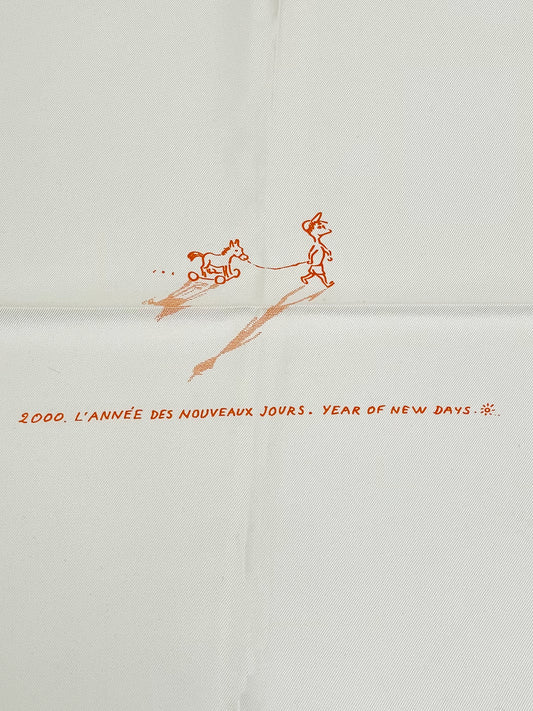 2000. L'ANNÉE DES NOUVEAUX JOURS. YEAR OF NEW DAYS.